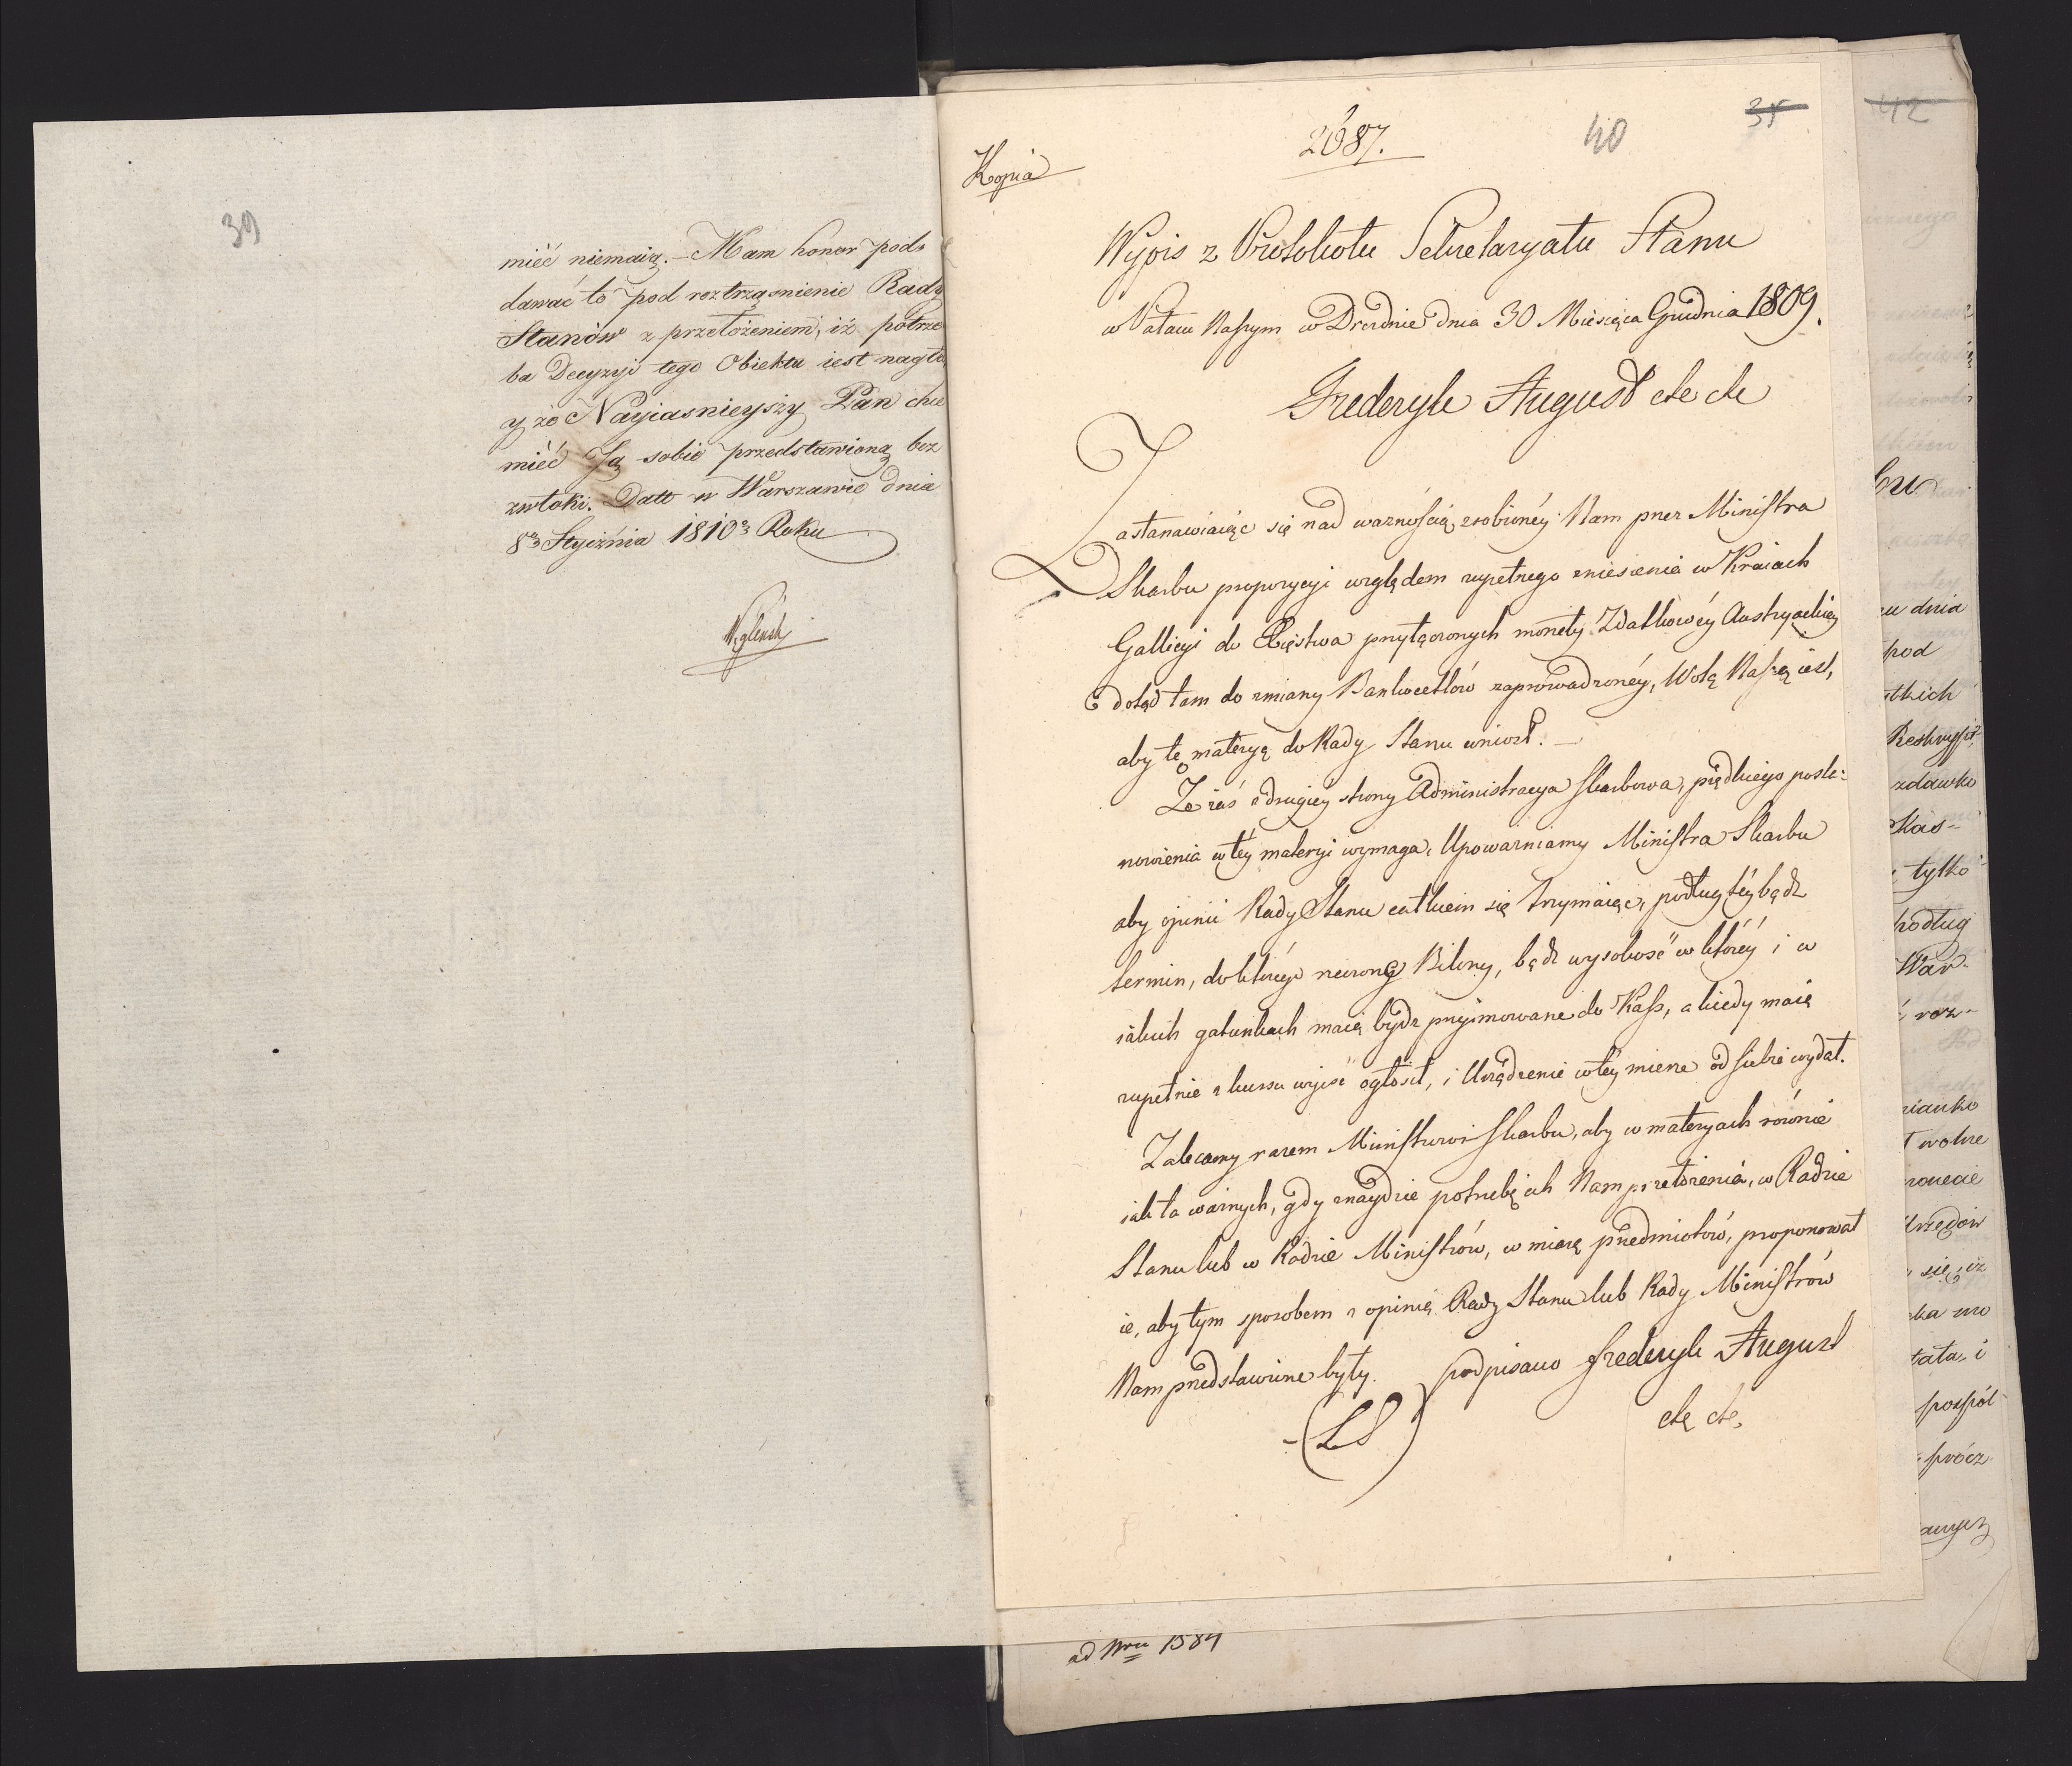 39
mieć niemaią. – Mam honor pod-
dawać to pod roztrząsnienie Rady
Stanów z przełożeniem, iż potrze
ba Decyzyi tego Obiektu iest nagłą,
y że Nayiasnieyszy Pan chce
mieć Ją sobie przedstawioną bez
zwłoki. Datt w Warszawie dnia
8º Stycznia 1810º Roku
Węglensk
2687.
40
35
Kopia
Wypis z Protokołu Sekretaryatu Stanu
w Pałacu Naszym w Dreźnie dnia 30 Miesiąca Grudnia 1809.
Frederyk August etc etc
Zastanawiaiąc się nad ważnością zrobionéy Nam przez Ministra
Skarbu propozycyi względem zupełnego zniesienia w Kraiach
Gallicyi do Xięstwa przyłączonych monéty Zdatkowéy Austryackiey
dotąd tam do zmiany Bankocetlów zaprowadzonéy, Wolą Naszą iest,
aby tę materyą do Rady Stanu wniosł. –
Że zaś z drugiéy strony Administracya Skarbowa, prędkiego posta:
nowienia w téy materyi wymaga, Upoważniamy Ministra Skarbu
aby opinii Rady Stanu całkiem się trzymaiąc, podług téy bądz
termin, do którego rzeczone Bilony, bądz wysokość w któréy i w
iakich gatunkach maią bydz przyimowane do Kass, a kiedy maią
zupełnie z kursu wyiść ogłosił, i Urządzenie w téy mierze od siebie wydał.
Zalecamy razem Ministrowi Skarbu, aby w materyach równie
iak ta ważnych, gdy znaydzie potrzebę ich Nam przełożenia, w Radzie
Stanu lub w Radzie Ministrów, w miarę przedmiotów, proponował
ie, aby tym sposobem z opinią Rady Stanu lub Rady Ministrów
Nam przedstawione były. podpisano Frederyk August
(LS) etc etc.
ad Nrum 1584
42
bu
zu dnia
pod
stkich
Reskrypt
zdawko
Kas-
tylko
podług
War-
roz-
wolne
monecie
Urzędow
się, iż
ka
tała, i
pospól
prócz